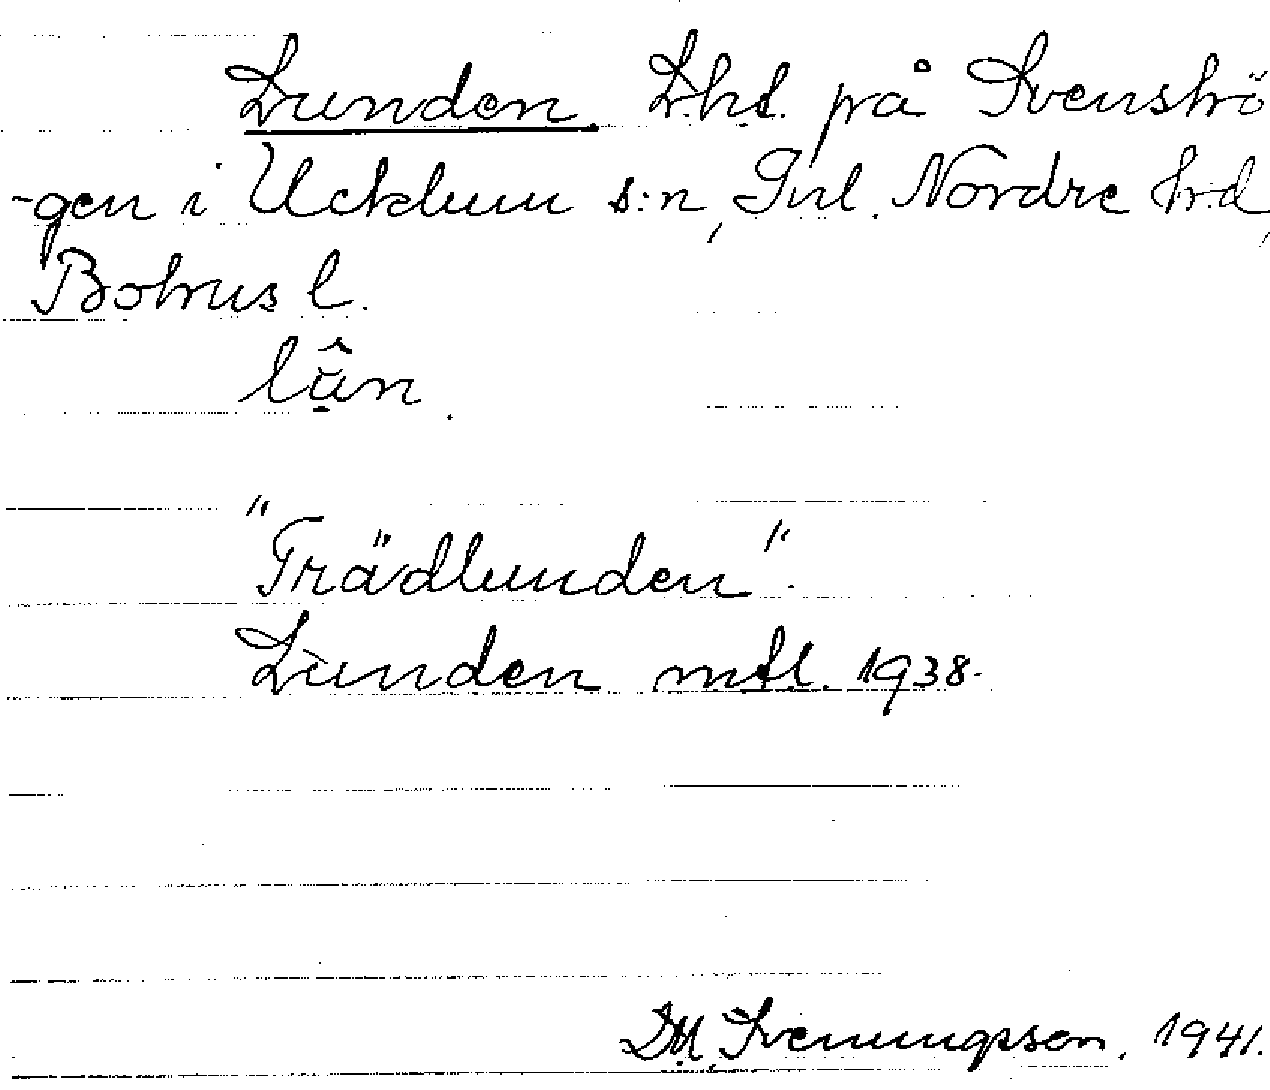 Lunden. Lht. på Svenshö
-gen i Ucklum s:n, Inl. Nordre hd,
Bohus l.
lũ̂n.
"Trädlunden".
Lunden mtl. 1938.
DM Svenungsson, 1941.